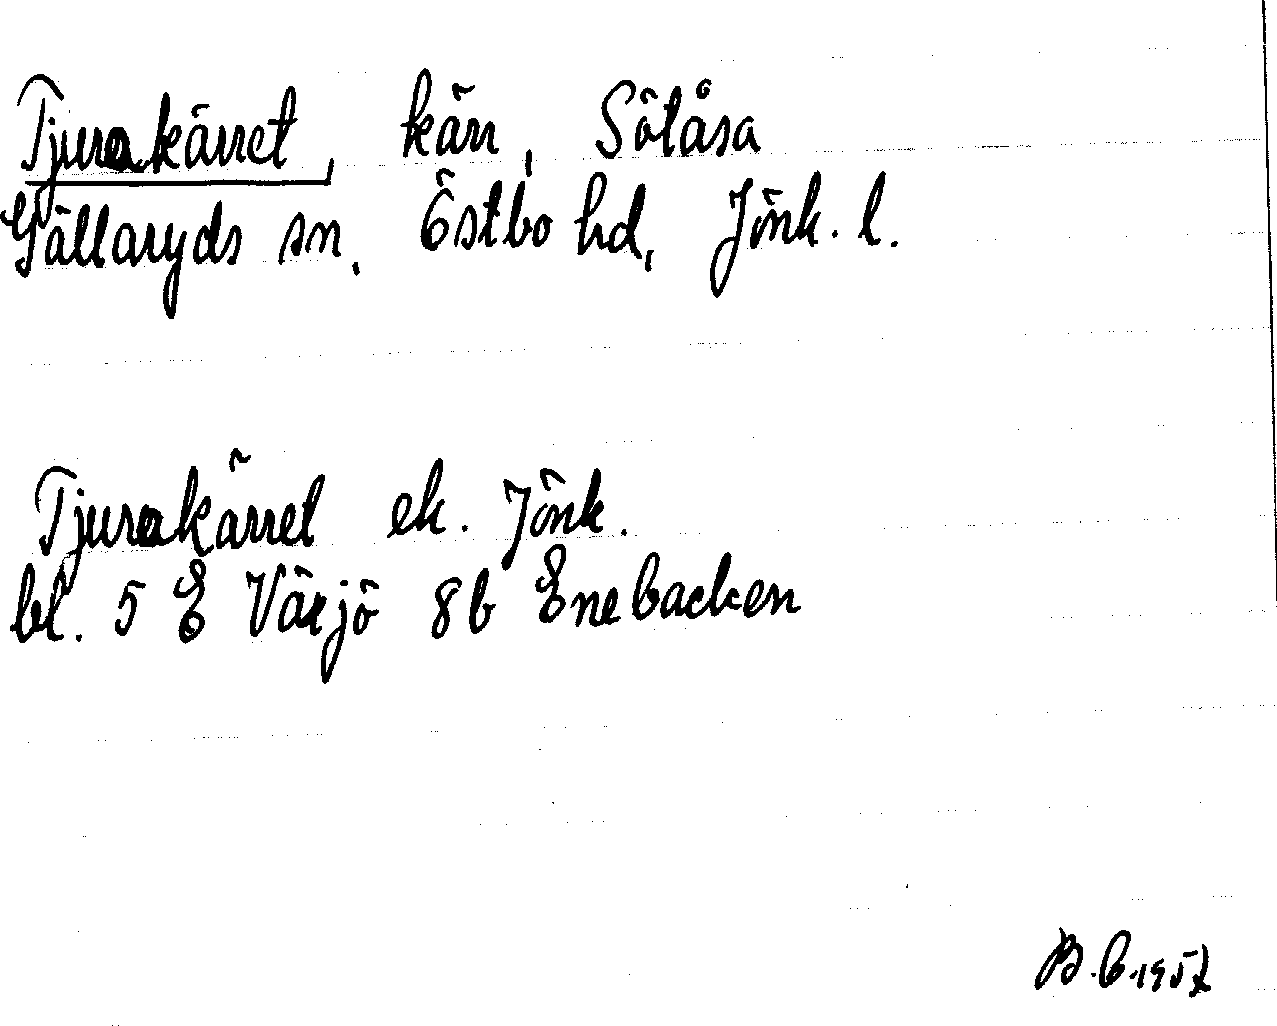 Tjurakärret, kärr, Sötåsa
Gällaryds sn. Östbo hd, Jönk. l.
Tjurakärret ek. Jönk.
bl. 5 E Växjö 8b Enebacken
B.E.1957